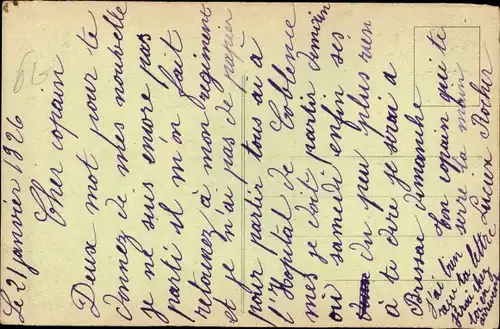 Le 21 janvier 1926
Cher copain
Deux mot pour te
donnez de mes nouvelle
je ne suis encore pas
parti il m'on fait
retournez à mon régiment
et je n'ai pas de papier
pour partir tous ai a
l'Hopital de Coblence
mes je doit partir demain
ou samedi enfin ses
du peu plus rien
à te dire je serai a
Brissac dimanche
Ton copain qui te
serre la main
Lucien Rocher
j'ai bien
reçu ta lettre